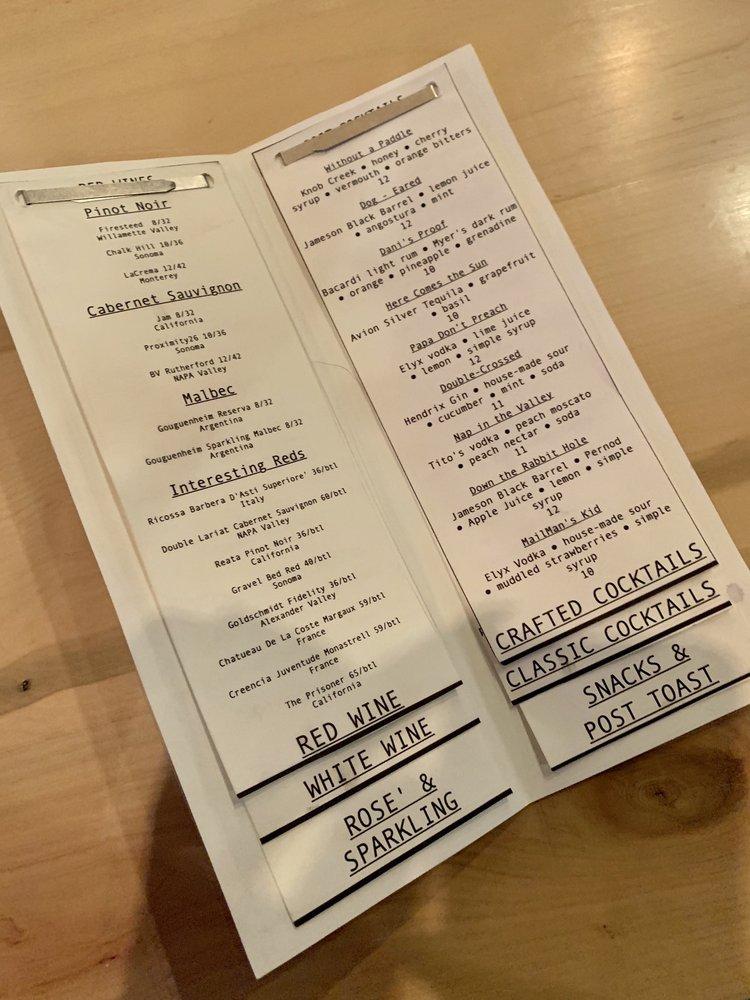 RED WINES
Pinot Noir
Firesteed 8/32
Willamette Valley
Chalk Hill 10/36
Sonoma
LaCrema 12/42
Monterey
Cabernet Sauvignon
Jam 8/32
California
Proximity26 10/36
Sonoma
BV Rutherford 12/42
NAPA Valley
Malbec
Gouguenheim Reserva 8/32
Argentina
Gouguenheim Sparkling Malbec 8/32
Argentina
Interesting Reds
Ricossa Barbera D'Asti Superiore' 36/btl
Italy
Double Lariat Cabernet Sauvignon 60/btl
NAPA Valley
Reata Pinot Noir 36/btl
California
Gravel Bed Red 40/btl
Sonoma
Goldschmidt Fidelity 36/btl
Alexander Valley
Chatueau De La Coste Margaux 59/btl
France
Creencia Juventude Monastrell 59/btl
France
The Prisoner 65/btl
California
RED WINE
WHITE WINE
ROSE' &
SPARKLING
COCKTAILS
Without a Paddle
Knob Creek • honey • cherry
syrup • vermouth • orange bitters
12
Dog - Eared
Jameson Black Barrel • lemon juice
• angostura • mint
12
Dani's Proof
Bacardi light rum • Myer's dark rum
• orange • pineapple • grenadine
10
Here Comes the Sun
Avion Silver Tequila • grapefruit
• basil
10
Papa Don't Preach
Elyx vodka • lime juice
• lemon • simple syrup
12
Double-Crossed
Hendrix Gin • house-made sour
• cucumber • mint • soda
11
Nap in the Valley
Tito's vodka • peach moscato
• peach nectar • soda
11
Down the Rabbit Hole
Jameson Black Barrel • Pernod
• Apple Juice • lemon • simple
syrup
12
MailMan's Kid
Elyx Vodka • house-made sour
• muddled strawberries • simple
syrup
10
CRAFTED COCKTAILS
CLASSIC COCKTAILS
SNACKS &
POST TOAST